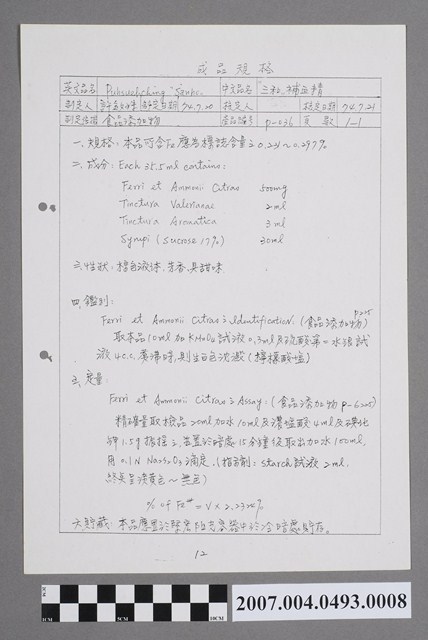 成品規格
英文品名 中文品名 三社補血精
制定人 制定日期 74.7.20 核定人 核定日期 74.7.21
制定依據 食品添加物 產品編號 P-036 頁數 1-1
一、規格：本品可含Fe應為標誌含量 0.241~0.297%
二、成分：Each 35.5ml contains:
Ferri et Ammonii Citras 500mg
Tinctura Valerianae 2ml
Tinctura Aromatica 3ml
Syrupi (Sucrose 17%) 30ml
三、性狀：棕色液体，芳香，具甜味
四、鑑別：
Ferri et Ammonii Citras之Identification. (食品添加物)
取本品10ml加KMnO4試液0.3ml及硫酸第二水銀試
液4c.c.煮沸時，則生白色沈澱(檸檬酸塩)
五、定量：
Ferri et Ammonii Citras之Assay: (食品添加物 P-6205)
精確量取檢品20ml加水10ml及濃塩酸4ml及碘化
鉀1.5g振搖之，靜置於暗處15分鐘後取出加水100ml，
用0.1N Na2S2O3滴定，(指示劑：starch試液2ml，
終点呈淡黃色~無色)
% of Fe = V × 2.232%
六、貯藏：本品應置於緊密阻光容器中於冷暗處貯存。
12
5CM 10CM
2007.004.0493.0008